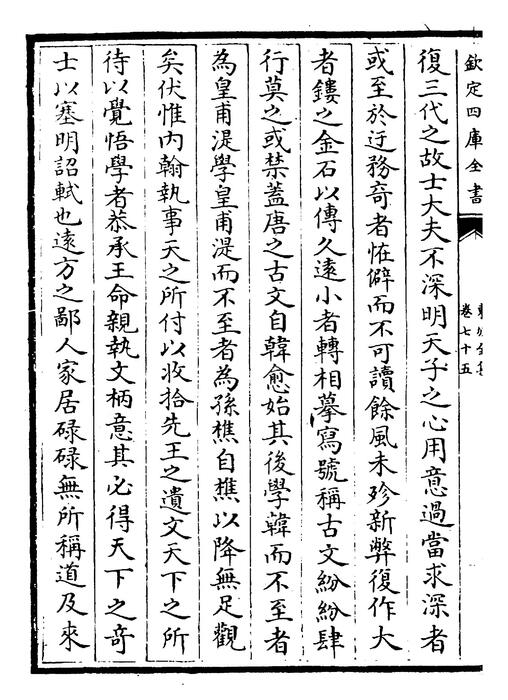 欽定四庫全書
東坡全集
卷七十五
復三代之故士大夫不深明天子之心用意過當求深者
或至於迂務竒者恠僻而不可讀餘風未殄新弊復作大
者鏤之金石以傳久遠小者轉相摹寫號稱古文紛紛肆
行莫之或禁蓋唐之古文自韓愈始其後學韓而不至者
為皇甫湜學皇甫湜而不至者為孫樵自樵以降無足觀
矣伏惟内翰執事天之所付以收拾先王之遺文天下之所
待以覺悟學者恭承王命親執文柄意其必得天下之竒
士以塞明詔軾也逺方之鄙人家居碌碌無所稱道及來